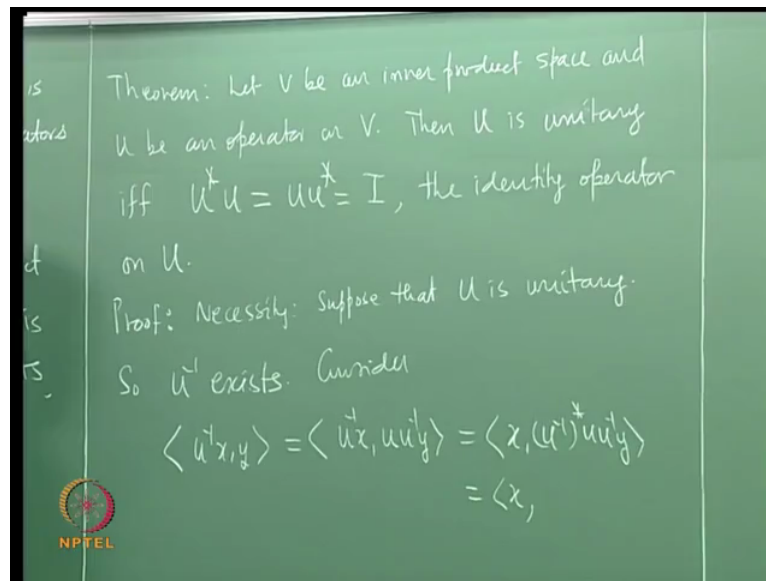 is
ators
ct
is
rs.
Theorem: Let V be an inner product space and
U be an operator on V. Then U is unitary
iff U*U = UU* = I, the identity operator
on U.
Proof: Necessity: Suppose that U is unitary.
So U⁻¹ exists. Consider
⟨U⁻¹x, y⟩ = ⟨U⁻¹x, UU⁻¹y⟩ = ⟨x, (U⁻¹)*UU⁻¹y⟩
= ⟨x,
NPTEL